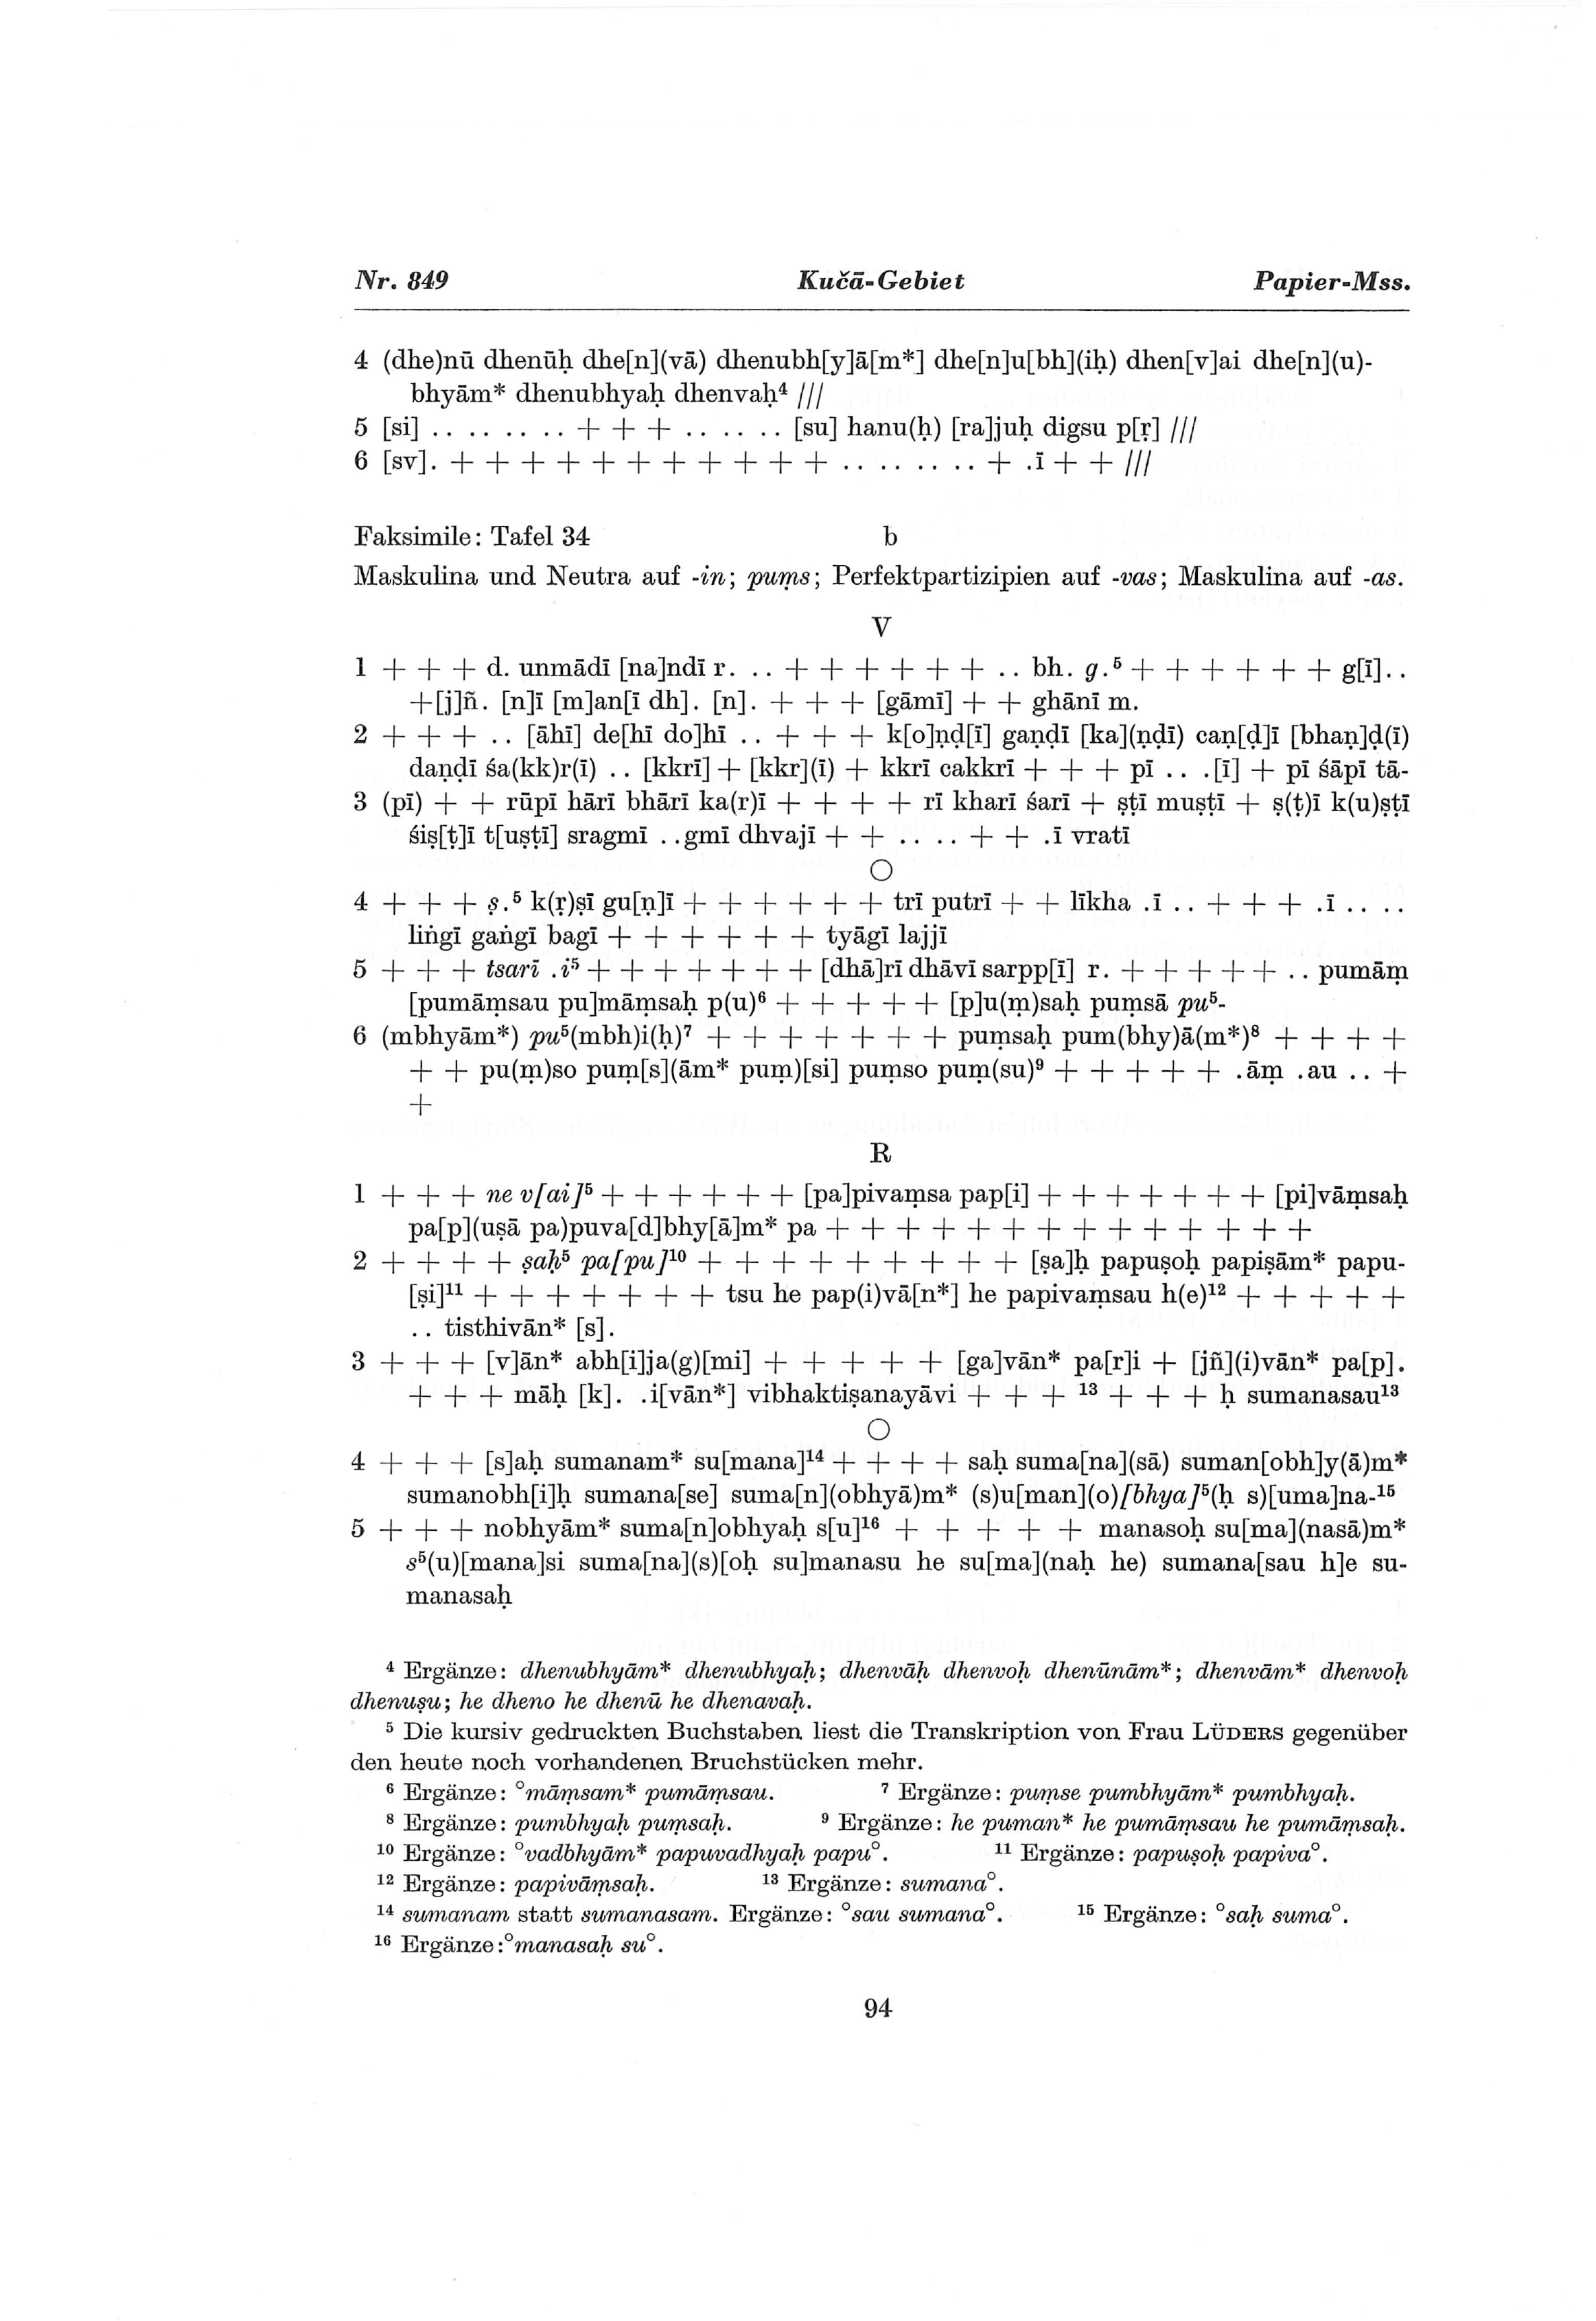 Nr. 849 Kučā-Gebiet Papier-Mss.
4 (dhe)nū dhenūḥ dhe[n](vā) dhenubh[y]ā[m*] dhe[n]u[bh](iḥ) dhen[v]ai dhe[n](u)-
bhyām* dhenubhyaḥ dhenvaḥ⁴ ///
5 [si] .. .. .. .. + + + .. .. .. [su] hanu(ḥ) [ra]juḥ digsu p[ṛ] ///
6 [sv]. + + + + + + + + + + + .. .. .. .. + .ī + + ///
Faksimile: Tafel 34 b
Maskulina und Neutra auf -in; puṃs; Perfektpartizipien auf -vas; Maskulina auf -as.
V
1 + + + d. unmādī [na]ndī r. .. + + + + + + .. bh. g.⁵ + + + + + + g[ī]..
+[j]ñ. [n]ī [m]an[ī dh]. [n]. + + + [gāmī] + + ghānī m.
2 + + + .. [āhī] de[hī do]hī .. + + + k[o]ṇḍ[ī] gaṇḍī [ka](ṇḍī) caṇ[ḍ]ī [bhaṇ]ḍ(ī)
daṇḍī śa(kk)r(ī) .. [kkrī] + [kkr](ī) + kkrī cakkrī + + + pī .. .[ī] + pī śāpī tā-
3 (pī) + + rūpī hārī bhārī ka(r)ī + + + + rī kharī śarī + ṣṭī muṣṭī + ṣ(ṭ)ī k(u)ṣṭī
śiṣ[ṭ]ī t[uṣṭī] sragmī ..gmī dhvajī + + .. .. + + .ī vratī
○
4 + + + ṣ.⁵ k(ṛ)ṣī gu[ṇ]ī + + + + + + trī putrī + + līkha .ī .. + + + .ī .. ..
liṅgī gaṅgī bagī + + + + + + tyāgī lajjī
5 + + + tsarī .i⁵ + + + + + + + [dhā]rī dhāvī sarpp[ī] r. + + + + + .. pumāṃ
[pumāṃsau pu]māṃsaḥ p(u)⁶ + + + + + [p]u(ṃ)saḥ puṃsā pu⁵-
6 (mbhyām*) pu⁵(mbh)i(ḥ)⁷ + + + + + + + puṃsaḥ pum(bhy)ā(m*)⁸ + + + +
+ + pu(ṃ)so puṃ[s](ām* puṃ)[si] puṃso puṃ(su)⁹ + + + + + .āṃ .au .. +
+
R
1 + + + ne v[ai]⁵ + + + + + + [pa]pivaṃsa pap[i] + + + + + + + [pi]vāṃsaḥ
pa[p](uṣā pa)puva[d]bhy[ā]m* pa + + + + + + + + + + + + + +
2 + + + + ṣaḥ⁵ pa[pu]¹⁰ + + + + + + + + + [ṣa]ḥ papuṣoḥ papiṣām* papu-
[ṣi]¹¹ + + + + + + + tsu he pap(i)vā[n*] he papivaṃsau h(e)¹² + + + + +
.. tisthivān* [s].
3 + + + [v]ān* abh[i]ja(g)[mi] + + + + + [ga]vān* pa[r]i + [jñ](i)vān* pa[p].
+ + + māḥ [k]. .i[vān*] vibhaktiṣanayāvi + + + ¹³ + + + ḥ sumanasau¹³
○
4 + + + [s]aḥ sumanam* su[mana]¹⁴ + + + + saḥ suma[na](sā) suman[obh]y(ā)m*
sumanobh[i]ḥ sumana[se] suma[n](obhyā)m* (s)u[man](o)[bhya]⁵(ḥ s)[uma]na-¹⁵
5 + + + nobhyām* suma[n]obhyaḥ s[u]¹⁶ + + + + + manasoḥ su[ma](nasā)m*
s⁵(u)[mana]si suma[na](s)[oḥ su]manasu he su[ma](naḥ he) sumana[sau h]e su-
manasaḥ
⁴ Ergänze: dhenubhyām* dhenubhyaḥ; dhenvāḥ dhenvoḥ dhenūnām*; dhenvām* dhenvoḥ
dhenuṣu; he dheno he dhenū he dhenavaḥ.
⁵ Die kursiv gedruckten Buchstaben liest die Transkription von Frau LÜDERS gegenüber
den heute noch vorhandenen Bruchstücken mehr.
⁶ Ergänze: °māṃsam* pumāṃsau. ⁷ Ergänze: puṃse pumbhyām* pumbhyaḥ.
⁸ Ergänze: pumbhyaḥ puṃsaḥ. ⁹ Ergänze: he puman* he pumāṃsau he pumāṃsaḥ.
¹⁰ Ergänze: °vadbhyām* papuvadhyaḥ papu°. ¹¹ Ergänze: papuṣoḥ papiva°.
¹² Ergänze: papivāṃsaḥ. ¹³ Ergänze: sumana°.
¹⁴ sumanam statt sumanasam. Ergänze: °sau sumana°. ¹⁵ Ergänze: °saḥ suma°.
¹⁶ Ergänze:°manasaḥ su°.
94